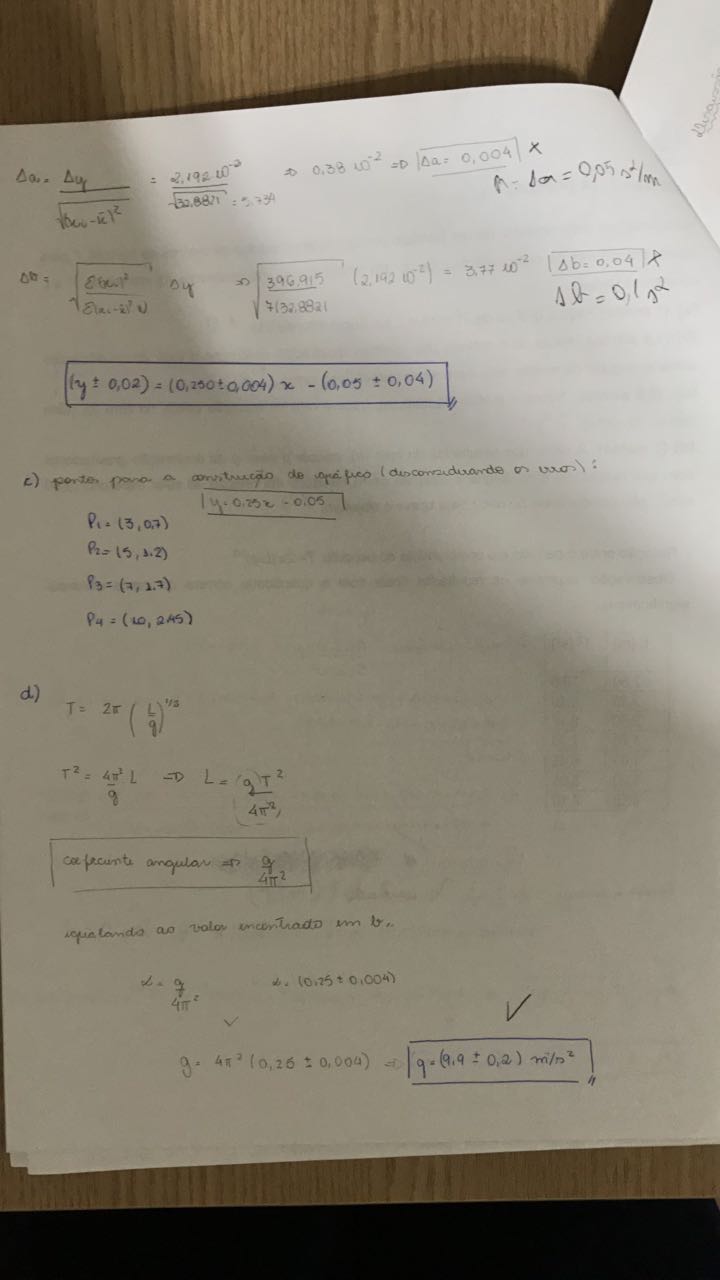 Δa = Δy / √(Σ(xi - x̄)²) = 2,192 10⁻² / √32,8821 = 5,734 ⇒ 0,38 10⁻² ⇒ Δa = 0,004 X
Δa = 0,05 s²/m
Δb = √(Σ(xi)² / Σ(xi - x̄)² N) Δy ⇒ √(396,915 / 7(32,8821) (2,192 10⁻²) = 3,77 10⁻² Δb = 0,04 X
Δb = 0,1 s²
(y ± 0,02) = (0,250 ± 0,004) x - (0,05 ± 0,04)
c) pontos para a construção do gráfico (desconsiderando os erros):
y = 0,25x - 0,05
P1 = (3, 0,7)
P2 = (5, 1.2)
P3 = (7, 1.7)
P4 = (10, 2,45)
d)
T = 2π (L/g)^1/2
T² = 4π²/g L ⇒ L = (g)T²/4π²
coeficiente angular ⇒ g/4π²
igualando ao valor encontrado em b,,
α = g/4π² α = (0,25 ± 0,004)
✓ ✓
g = 4π² (0,25 ± 0,004) ⇒ g = (9,9 ± 0,2) m/s²